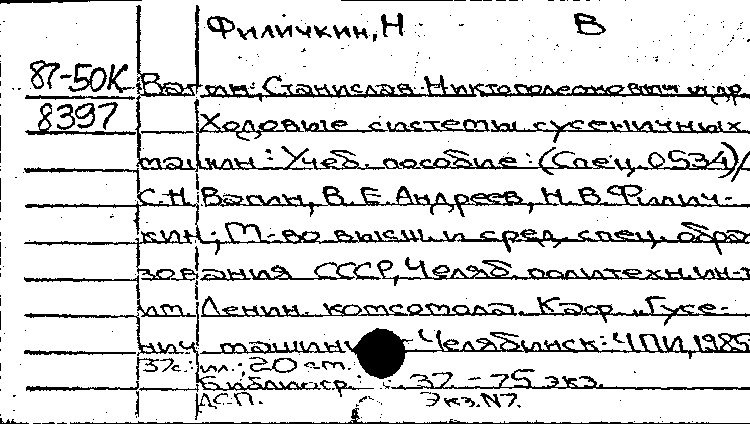 Филичкин, Н В
87-50К Вагин, Станислав Никтополеонович и др.
8397 Ходовые системы гусеничных
машин: Учеб. пособие: (Спец. 0534)/
С.Н. Вагин, В.Е. Андреев, Н.В. Филич-
кин; М-во высш. и сред. спец. обра
зования СССР, Челяб. политехн. ин-т
им. Ленин. комсомола. Каф. "Гусе-
нич. машины" - Челябинск: ЧПИ, 1985
37с.: ил.; 20 см.
Библиогр.: с. 37. - 75 экз.
ДСП. Экз. N7.